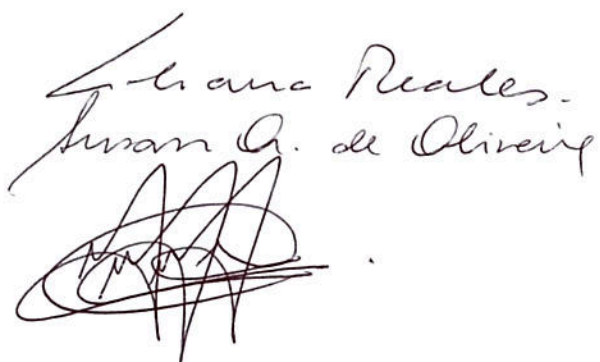 Liliana Reales.
Susan A. de Oliveira